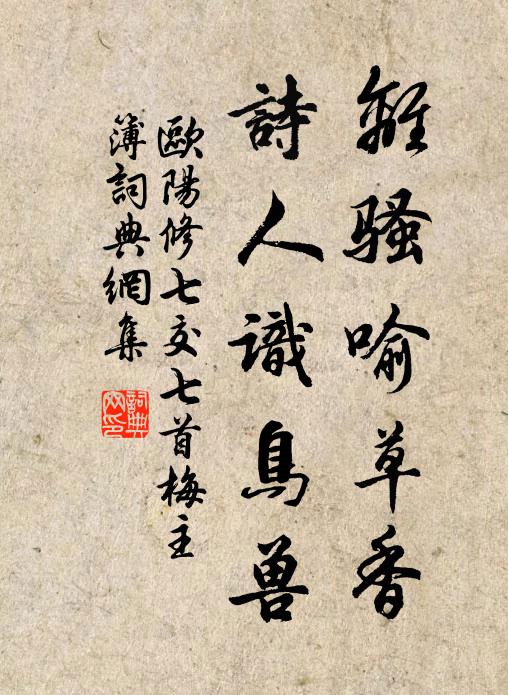 離騷喻草香
詩人識鳥獸
歐陽修七交七首梅主
簿詞典網集
詞典
网印